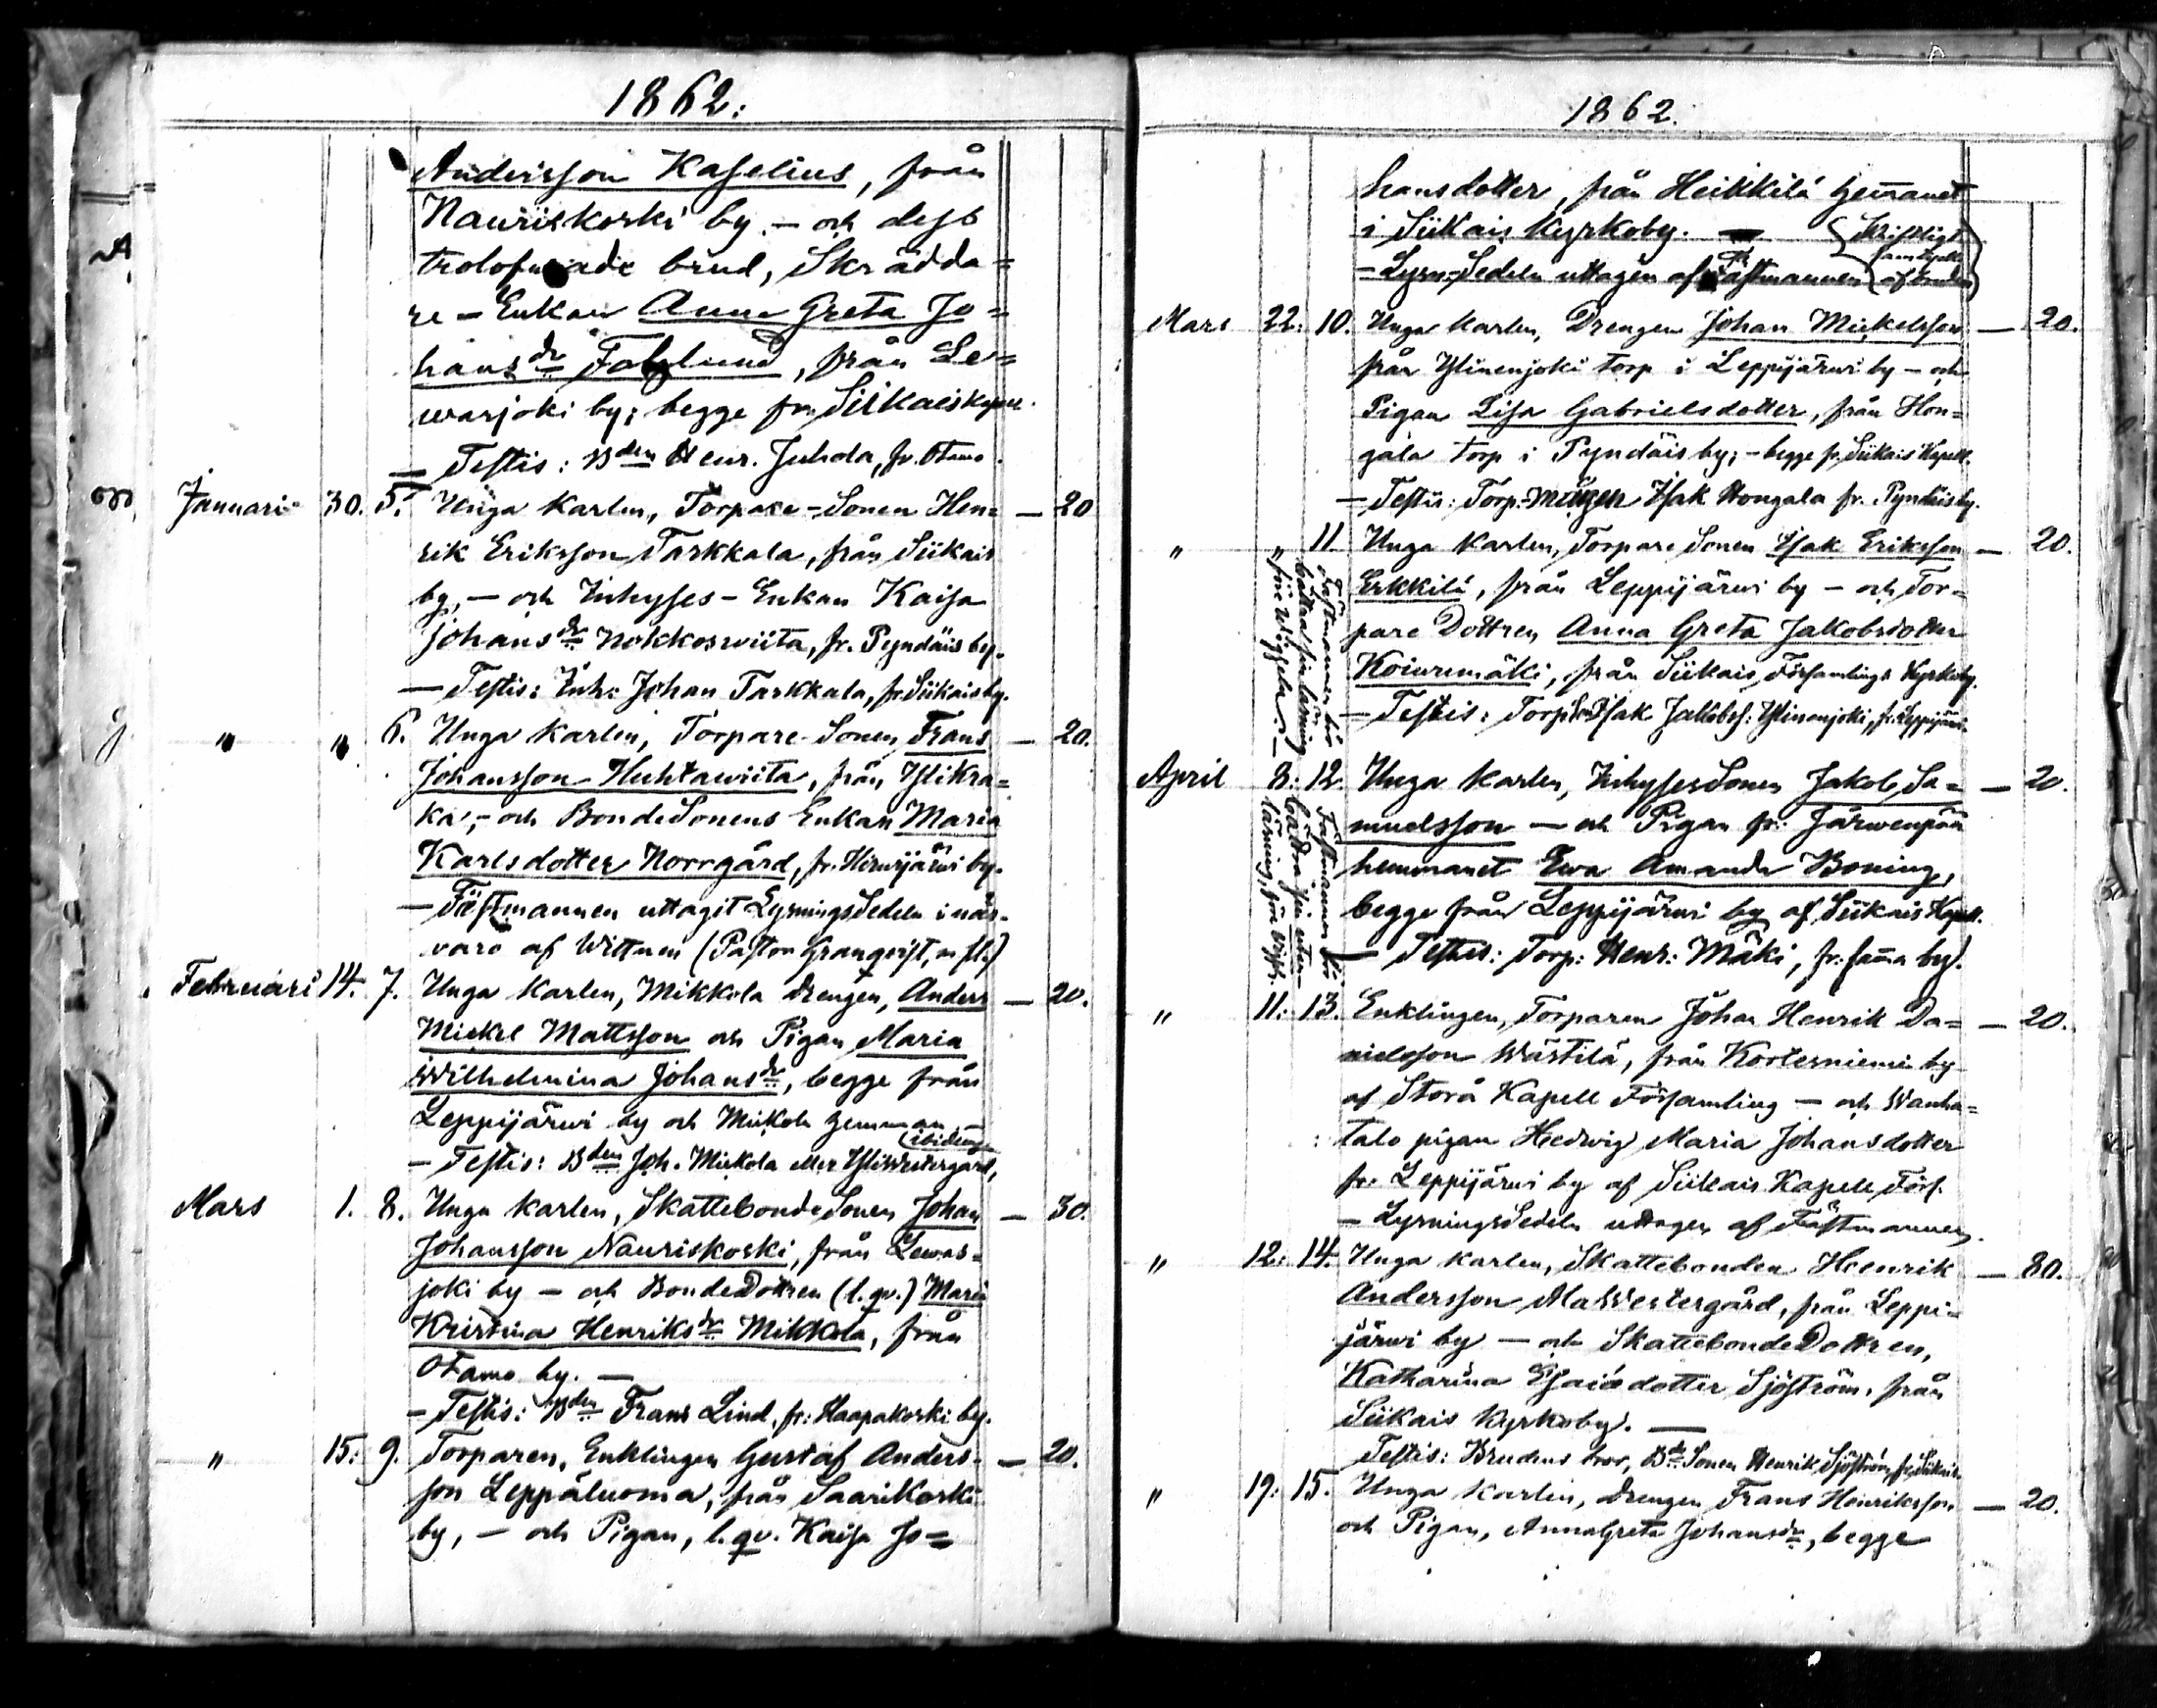 1862.
Andersson Kaselius, från
Nauriskoski by. – och dess
trolofvade brud, Skrädda=
re-Enkan Anna Greta Jo=
hansdr Forslund, från Le=
wasjoki by; begge fr. Siikais kapell.
— Testis: Bden Henr. Juhola, fr. Otamo.
Januari 30. 5. Unga Karlen, Torpare-Sonen Hen= — 20
rik Eriksson Tarkkala, från Siikais
by, — och Inhyses-Enkan Kaisa
Johansdr Nokkoswiita, fr. Pyndäis by.
— Testis: Inh: Johan Tarkkala, fr. Siikais by.
" " 6. Unga Karlen, Torpare-Sonen Frans — 20.
Johansson Huhtawiita, från Ylikra=
ka, – och BondeSonens Enkan Maria
Karlsdotter Norrgård, fr. Hirwijärwi by.
— Fästmannen uttagit LysningsSedeln i när-
varo af Wittnen (Pastor Granqvist, m fl.)
Februari 14. 7. Unga Karlen, Mikkola drengen, Anders — 20.
Mickel Mattsson och Pigan Maria
Wilhelmina Johansdr, begge från
Leppijärwi by och Mickola hemman. —
— Testis: Bden Joh. Mickola eller YliWestergård, (ibidem)
Mars 1. 8. Unga Karlen, SkattebondeSonen Johan — 30.
Johansson Nauriskoski, från Lewas=
joki by — och BondeDottren (l. qv.) Maria
Kristina Henriksdr Mikkola, från
Otamo by. —
— Testis: Bden Frans Lind, fr: Haapakoski by.
" 15: 9. Torparen, Enklingen Gustaf Anders- — 20.
son Leppäluoma, från Saarikoski
by, — och Pigan, l. qv. Kaisa Jo=
1862.
hansdotter, från Heikkilä hemanet
i Siikais Kyrkoby. — (Skriftligt
samtycke
= Lysn:Sedeln uttagen af Fästmannen af bruden)
Mars 22: 10. Unga Karlen, Drengen Johan Mickelsson — 20.
från Ylinenjoki torp i Leppijärwi by – och
Pigan Lisa Gabrielsdotter, från Hon=
gala torp i Pyndäis by; – begge fr. Siikais Kapell.
— Testis: Torp: Mågen Isak Hongala fr. Pyndäis by.
" " 11. Unga Karlen, Torpare Sonen Isak Eriksson — 20.
Erkkilä, från Leppijärwi by — och Tor=
pare Dottren Anna Greta Jakobsdotter
Koiwumäki, från Siikais Församlings Kyrkoby.
— Testis: Torp Son Isak Jakobss: Ylinenjoki, fr. Leppijärwi.
Fästmannen bör
bättra sin läsning
före Wigseln. —
April 8: 12. Unga Karlen, InhysesSonen Jakob Sa= — 20.
muelsson — och Pigan fr: Järwenpää
hemmanet Ewa Amanda Boning,
begge från Leppijärwi by af Siikais Kapell.
— Testes: Torp: Henr: Mäki, fr: samma by.
Fästmannen bör
bättra sin
läsning, före
" 11: 13. Enklingen, Torparen Johan Henrik Da= — 20.
nielsson Wärtilä, från Kortesniemi by
af Storå Kapell Församling — och Wanha=
talo pigan Hedwig Maria Johansdotter
fr. Leppijärwi by af Siikais Kapell Förs.
— LysningsSedeln uttagen af Fästmannen.
" 12: 14. Unga Karlen, Skattebonden Henrik — 80.
Andersson AlaWestergård, från Leppi-
järwi by — och SkattebondeDottren,
Katharina Esaiædotter Sjöström, från
Siikais Kyrkoby. —
Testis: Brudens bror, Bde Sonen Henrik Sjöström, fr. Siikais.
" 19: 15. Unga Karlen, drengen Frans Henriksson — 20.
och Pigan, AnnaGreta Johansdr, begge